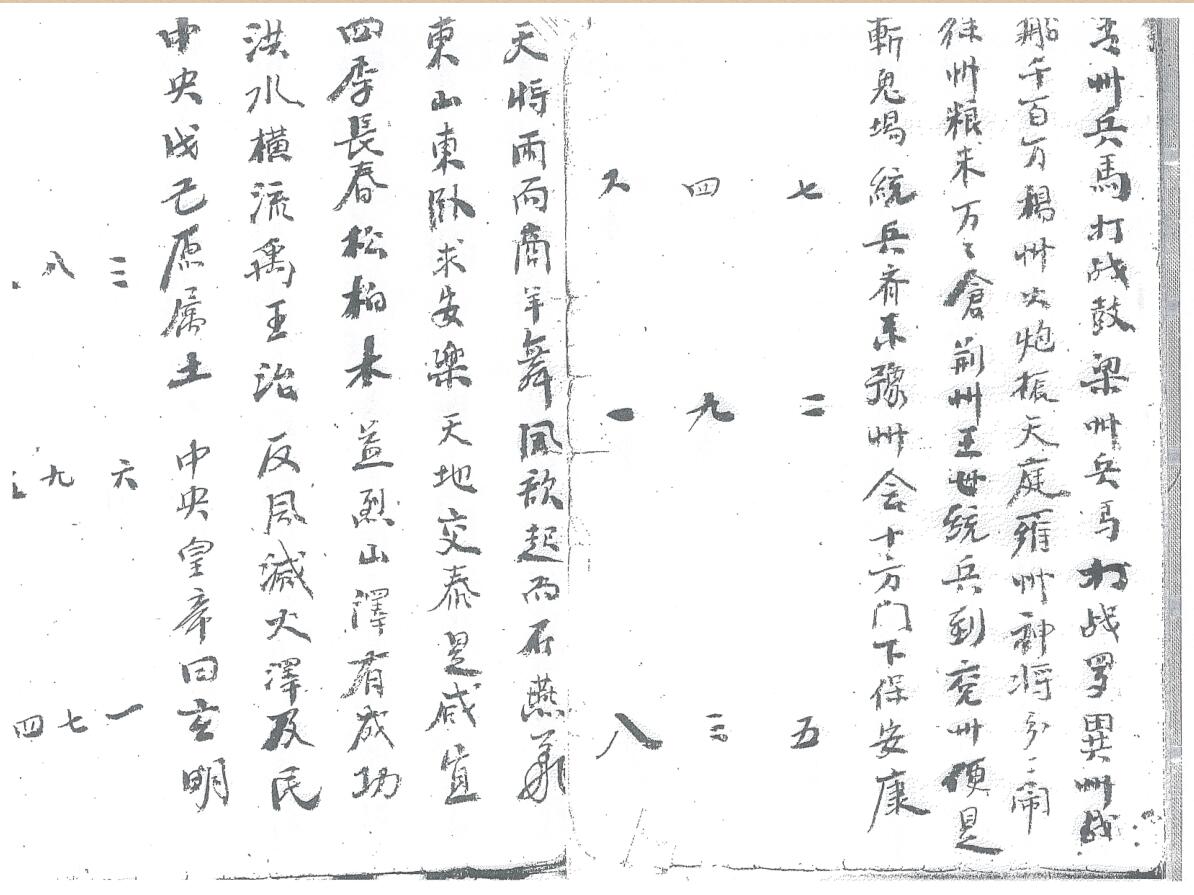 青州兵馬打战鼓梁州兵馬打战罗異州战
船千百万楊州火炮振天庭雍州神将多〻闹
徐州粮米万〻倉荆州王世統兵到兖州便是
斬鬼場統兵齐来豫州会十方门下保安康
七 二 五
四 九 三
六 一 八
天将雨而商羊舞風欲起而石燕
東山東卧求安樂天地交泰是咸宜
四季長春松柏木益烈山澤有成功
洪水横流禹王治反風滅火澤及民
中央戊己原属土 中央皇帝曰玄明
三 六 一
八 九 七
四